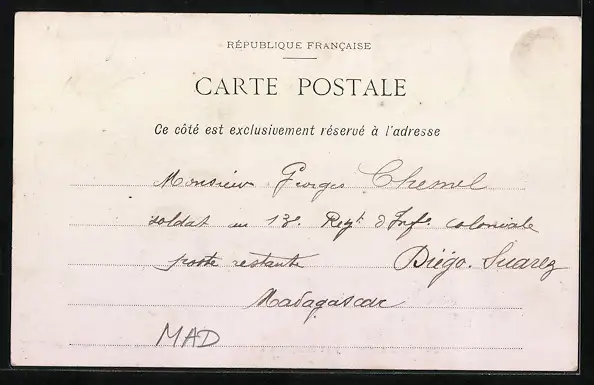 RÉPUBLIQUE FRANÇAISE
CARTE POSTALE
Ce côté est exclusivement réservé à l'adresse
Monsieur Georges Chemel
soldat au 13e Regt d'Infe coloniale
poste restante Diégo. Suarez
Madagascar
MAD